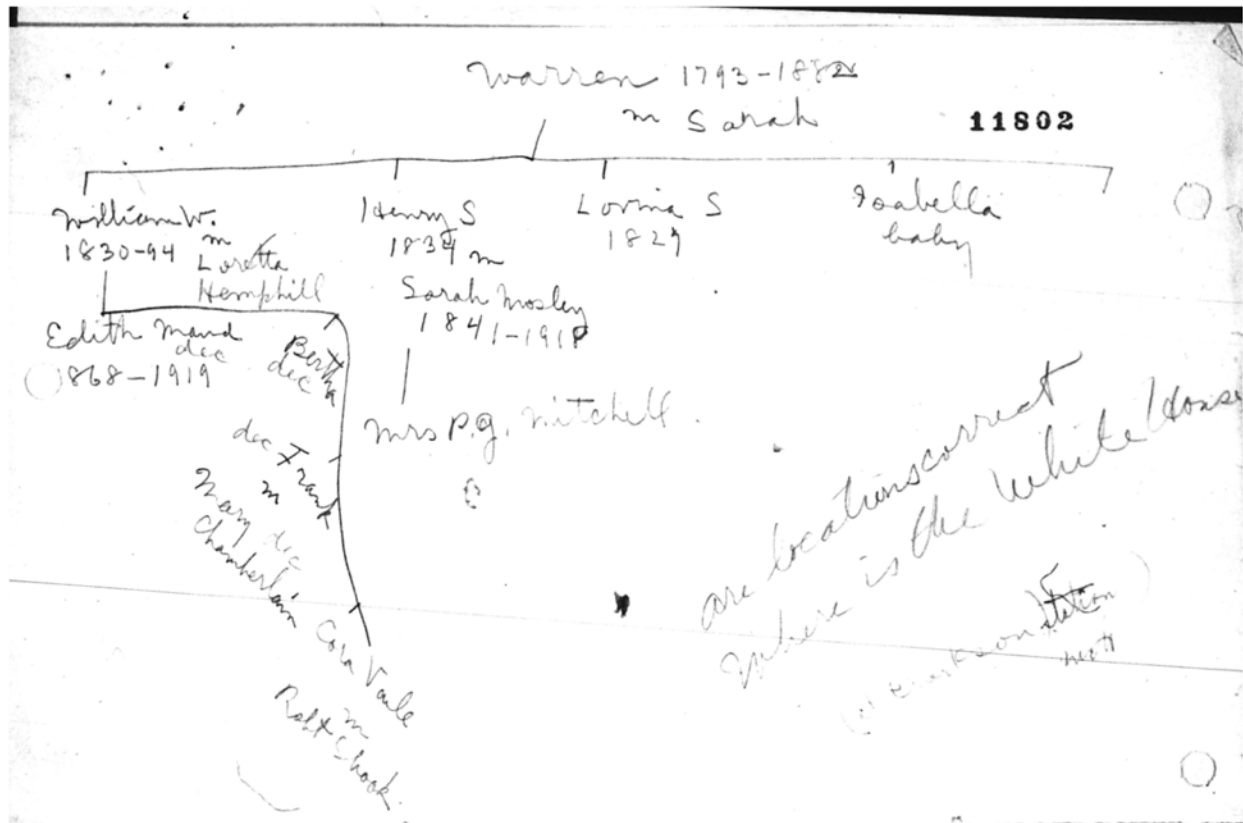 Warren 1793-1882
m Sarah
11802
William W.
1830-94 m
Loretta
Hemphill
Henry S
1834 m
Sarah Mosley
1841-1918
Lovina S
1829
Isabella
baby
Edith Maud
dec
1868-1919
Bertha
dec
Mrs P.G. Mitchell.
dec Frank
m
Mary dec
Chamberlain
Cora Vaile
m
Robt Shook.
are locations correct
Where is the White House
station